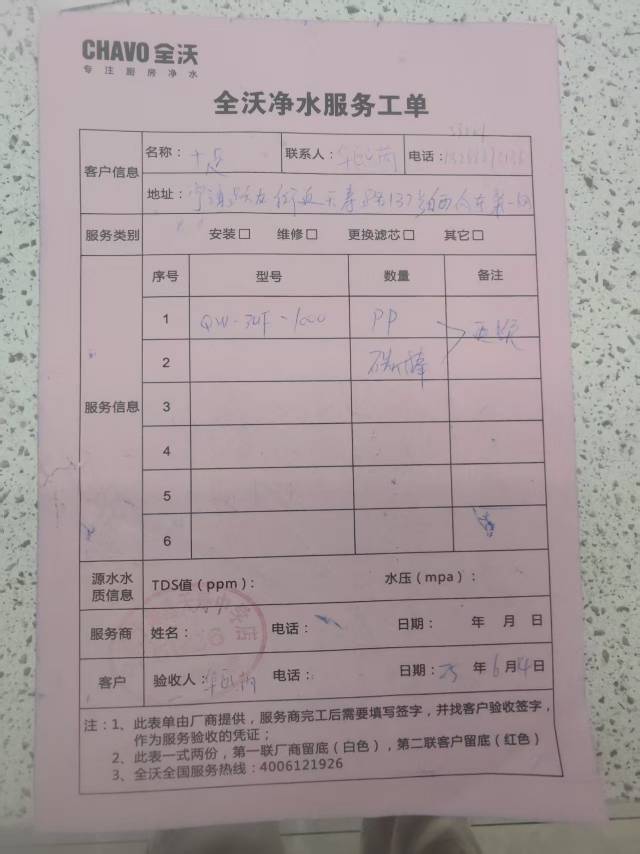 CHAVO 全沃
专注厨房净水
全沃净水服务工单
客户信息
名称：十足 联系人： 电话：
地址：
服务类别 安装□ 维修□ 更换滤芯□ 其它□
服务信息
序号 型号 数量 备注
1 QW-3UF-1000 PP
2 碳棒
3
4
5
6
源水水质信息 TDS值（ppm）： 水压（mpa）：
服务商 姓名： 电话： 日期： 年 月 日
客户 验收人： 电话： 日期：25 年 6 月 4 日
注：1、此表单由厂商提供，服务商完工后需要填写签字，并找客户验收签字，
作为服务验收的凭证；
2、此表一式两份，第一联厂商留底（白色），第二联客户留底（红色）
3、全沃全国服务热线：4006121926